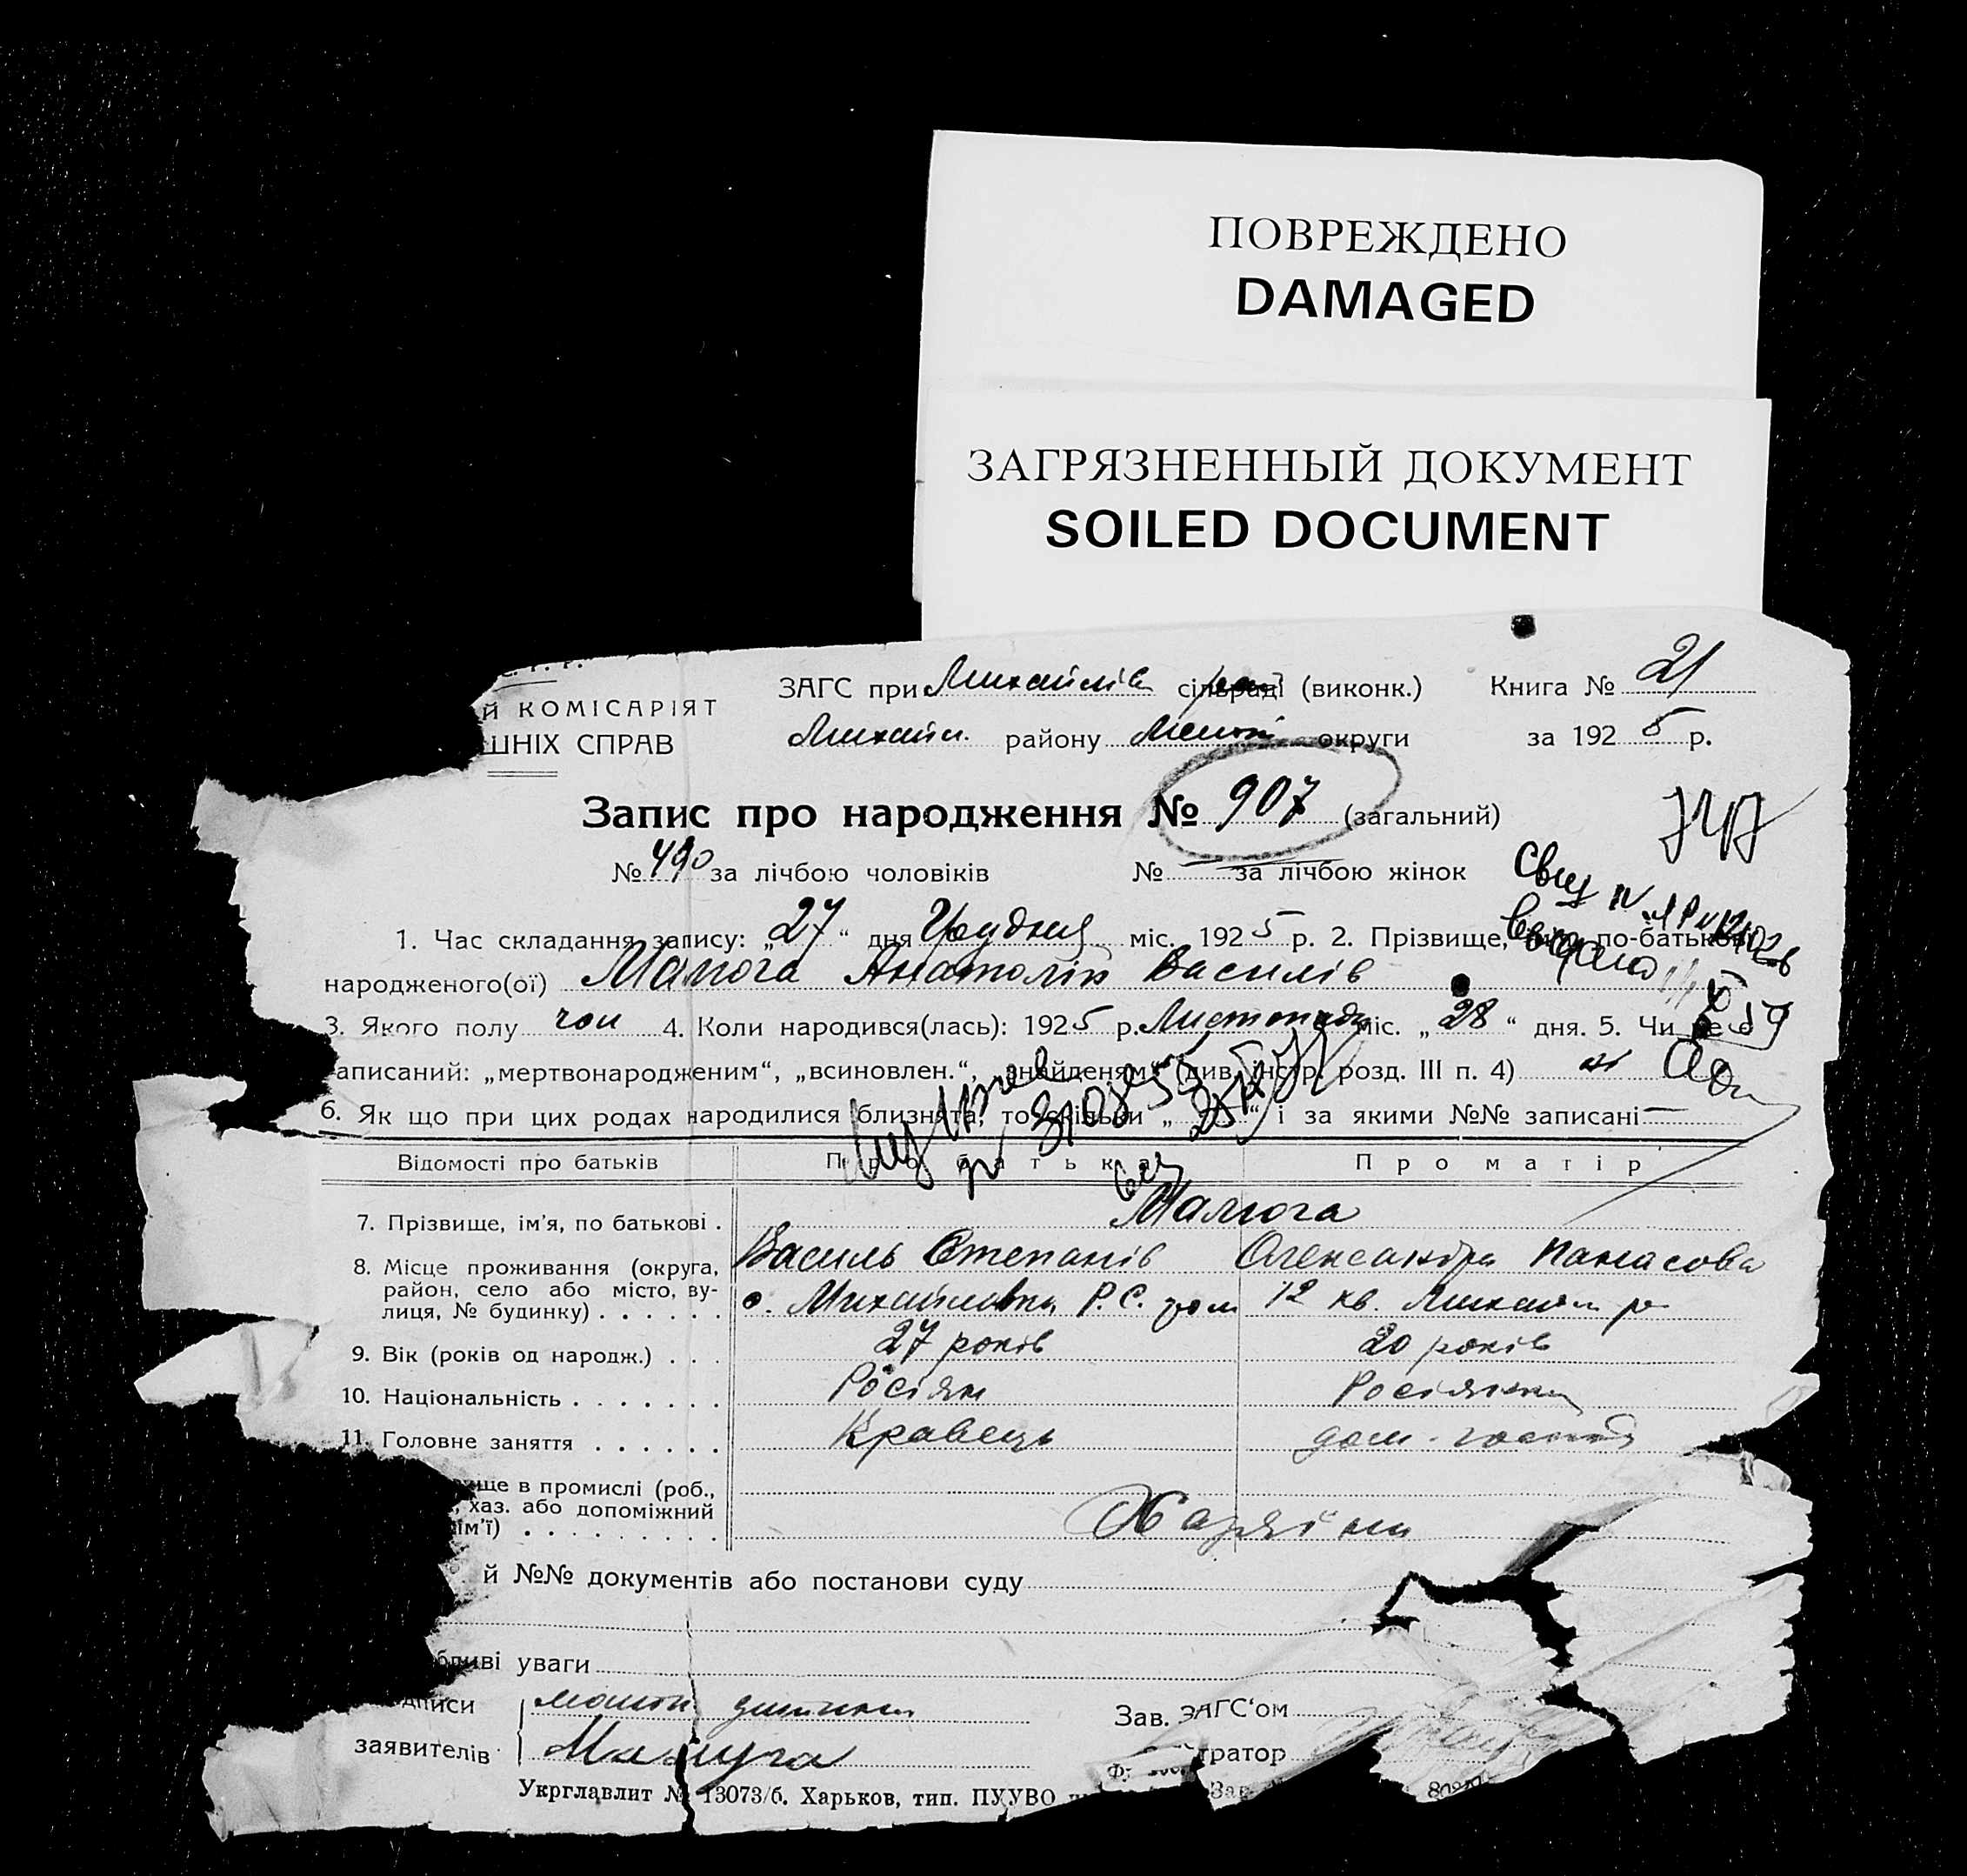 ПОВРЕЖДЕНО
DAMAGED
ЗАГРЯЗНЕННЫЙ ДОКУМЕНТ
SOILED DOCUMENT
ЗАГС при Михайлів сільраді (виконк.) Книга № 21
й КОМІСАРІЯТ
ШНІХ СПРАВ
Михайл. району округи за 1925 р.
Запис про народження № 907 (загальний)
747
№ 490 за лічбою чоловіків № за лічбою жінок
1. Час складання запису: „27“ дня Грудня міс. 1925 р. 2. Прізвище, по-батькові
народженого(ої) Малюга Анатолій Василів
3. Якого полу чол 4. Коли народився(лась): 1925 р. Листопада міс. „28“ дня. 5. Чи не є
аписаний: „мертвонародженим“, „всиновлен.“, „знайденям“ (див. інстр. розд. III п. 4) ні
6. Як що при цих родах народилися близнята, то скільки „ “ і за якими №№ записані —
Відомості про батьків Про батька Про матір
7. Прізвище, ім'я, по батькові . Малюга
Василь Степанів Олександра Панасова
8. Місце проживання (округа, район, село або місто, вулиця, № будинку) . . . . . . с. Михайлівка Р.С. дом 12 кв. Михайл р
9. Вік (років од народж.) . . . 27 років 20 років
10. Національність . . . . . . . Росіян Росіянка
11. Головне заняття . . . . . . Кравець дом. госпо
ще в промислі (роб.,
хаз. або допоміжний
ім'ї) . . . . . . . . .
й №№ документів або постанови суду
бливі уваги
дписи
заявителів Малуга
Зав. ЗАГС'ом
тратор
Укрглавлит № 13073/б. Харьков, тип. ПУУВО